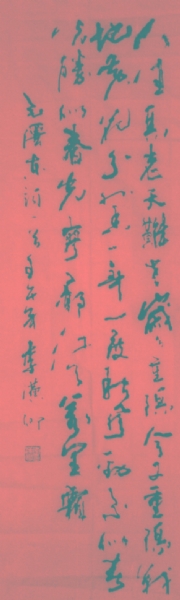 人生易老天難老歲々重陽今又重陽戰
地黃花分外香一年一度秋風勁不似春
光勝似春光寥廓江天萬里霜
毛澤東詞一首 年 李